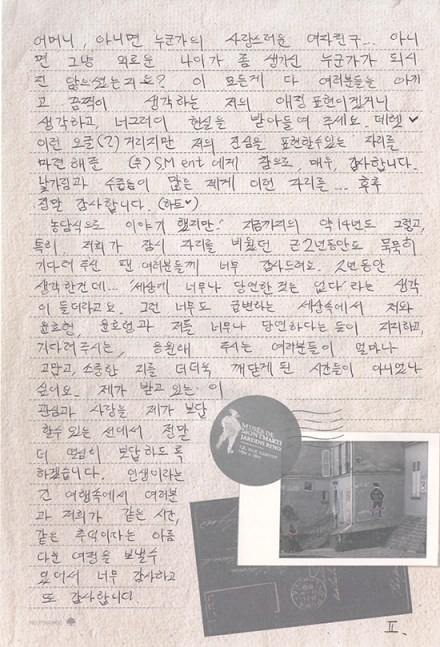 어머니, 아니면 누군가의 사랑스러운 여자친구... 아니
면 그냥 외로운 나이가 좀 생기신 누군가가 되시
진 않으셨는지요? 이 모든게 다 여러분들을 아끼
고 끔찍이 생각하는 저의 애정 표현이겠거니
생각하고, 너그러이 현실을 받아들여 주세요. 데헷♥
이런 오글(?)거리지만 저의 진심을 표현할수있는 자리를
마련해준 (주)SM ent 에게 참으로, 매우, 감사합니다.
낯가림과 수줍음이 많은 제게 이런 자리를... 후후
정말 감사합니다. (하트♥)
농담식으로 이야기 했지만.. 지금까지의 약 14년도 그렇고,
특히 저희가 잠시 자리를 비웠던 근 2년동안도 묵묵히
기다려 주신 팬 여러분들께 너무 감사드려요. 2년동안
생각한건데... '세상에 너무나 당연한 것은 없다' 라는 생각
이 들더라고요. 그런 너무도 급변하는 세상속에서 저와
윤호형, 윤호형과 저를 너무나 당연하다는 듯이 지지하고,
기다려주시는, 응원해 주시는 여러분들이 얼마나
고맙고, 소중한 지를 더더욱 깨닫게 된 시간들이 아니었나
싶어요. 제가 받고 있는 이
관심과 사랑을 제가 보답
할수 있는 선에서 정말
더 열심히 보답하도록
하겠습니다. 인생이라는
긴 여행속에서 여러분
과 저희가 같은 시간,
같은 추억이라는 아름
다운 여정을 보낼수
있어서 너무 감사하고
또 감사합니다.
MUSÉE DE
MONTMARTRE
JARDINS RENOIR
II.